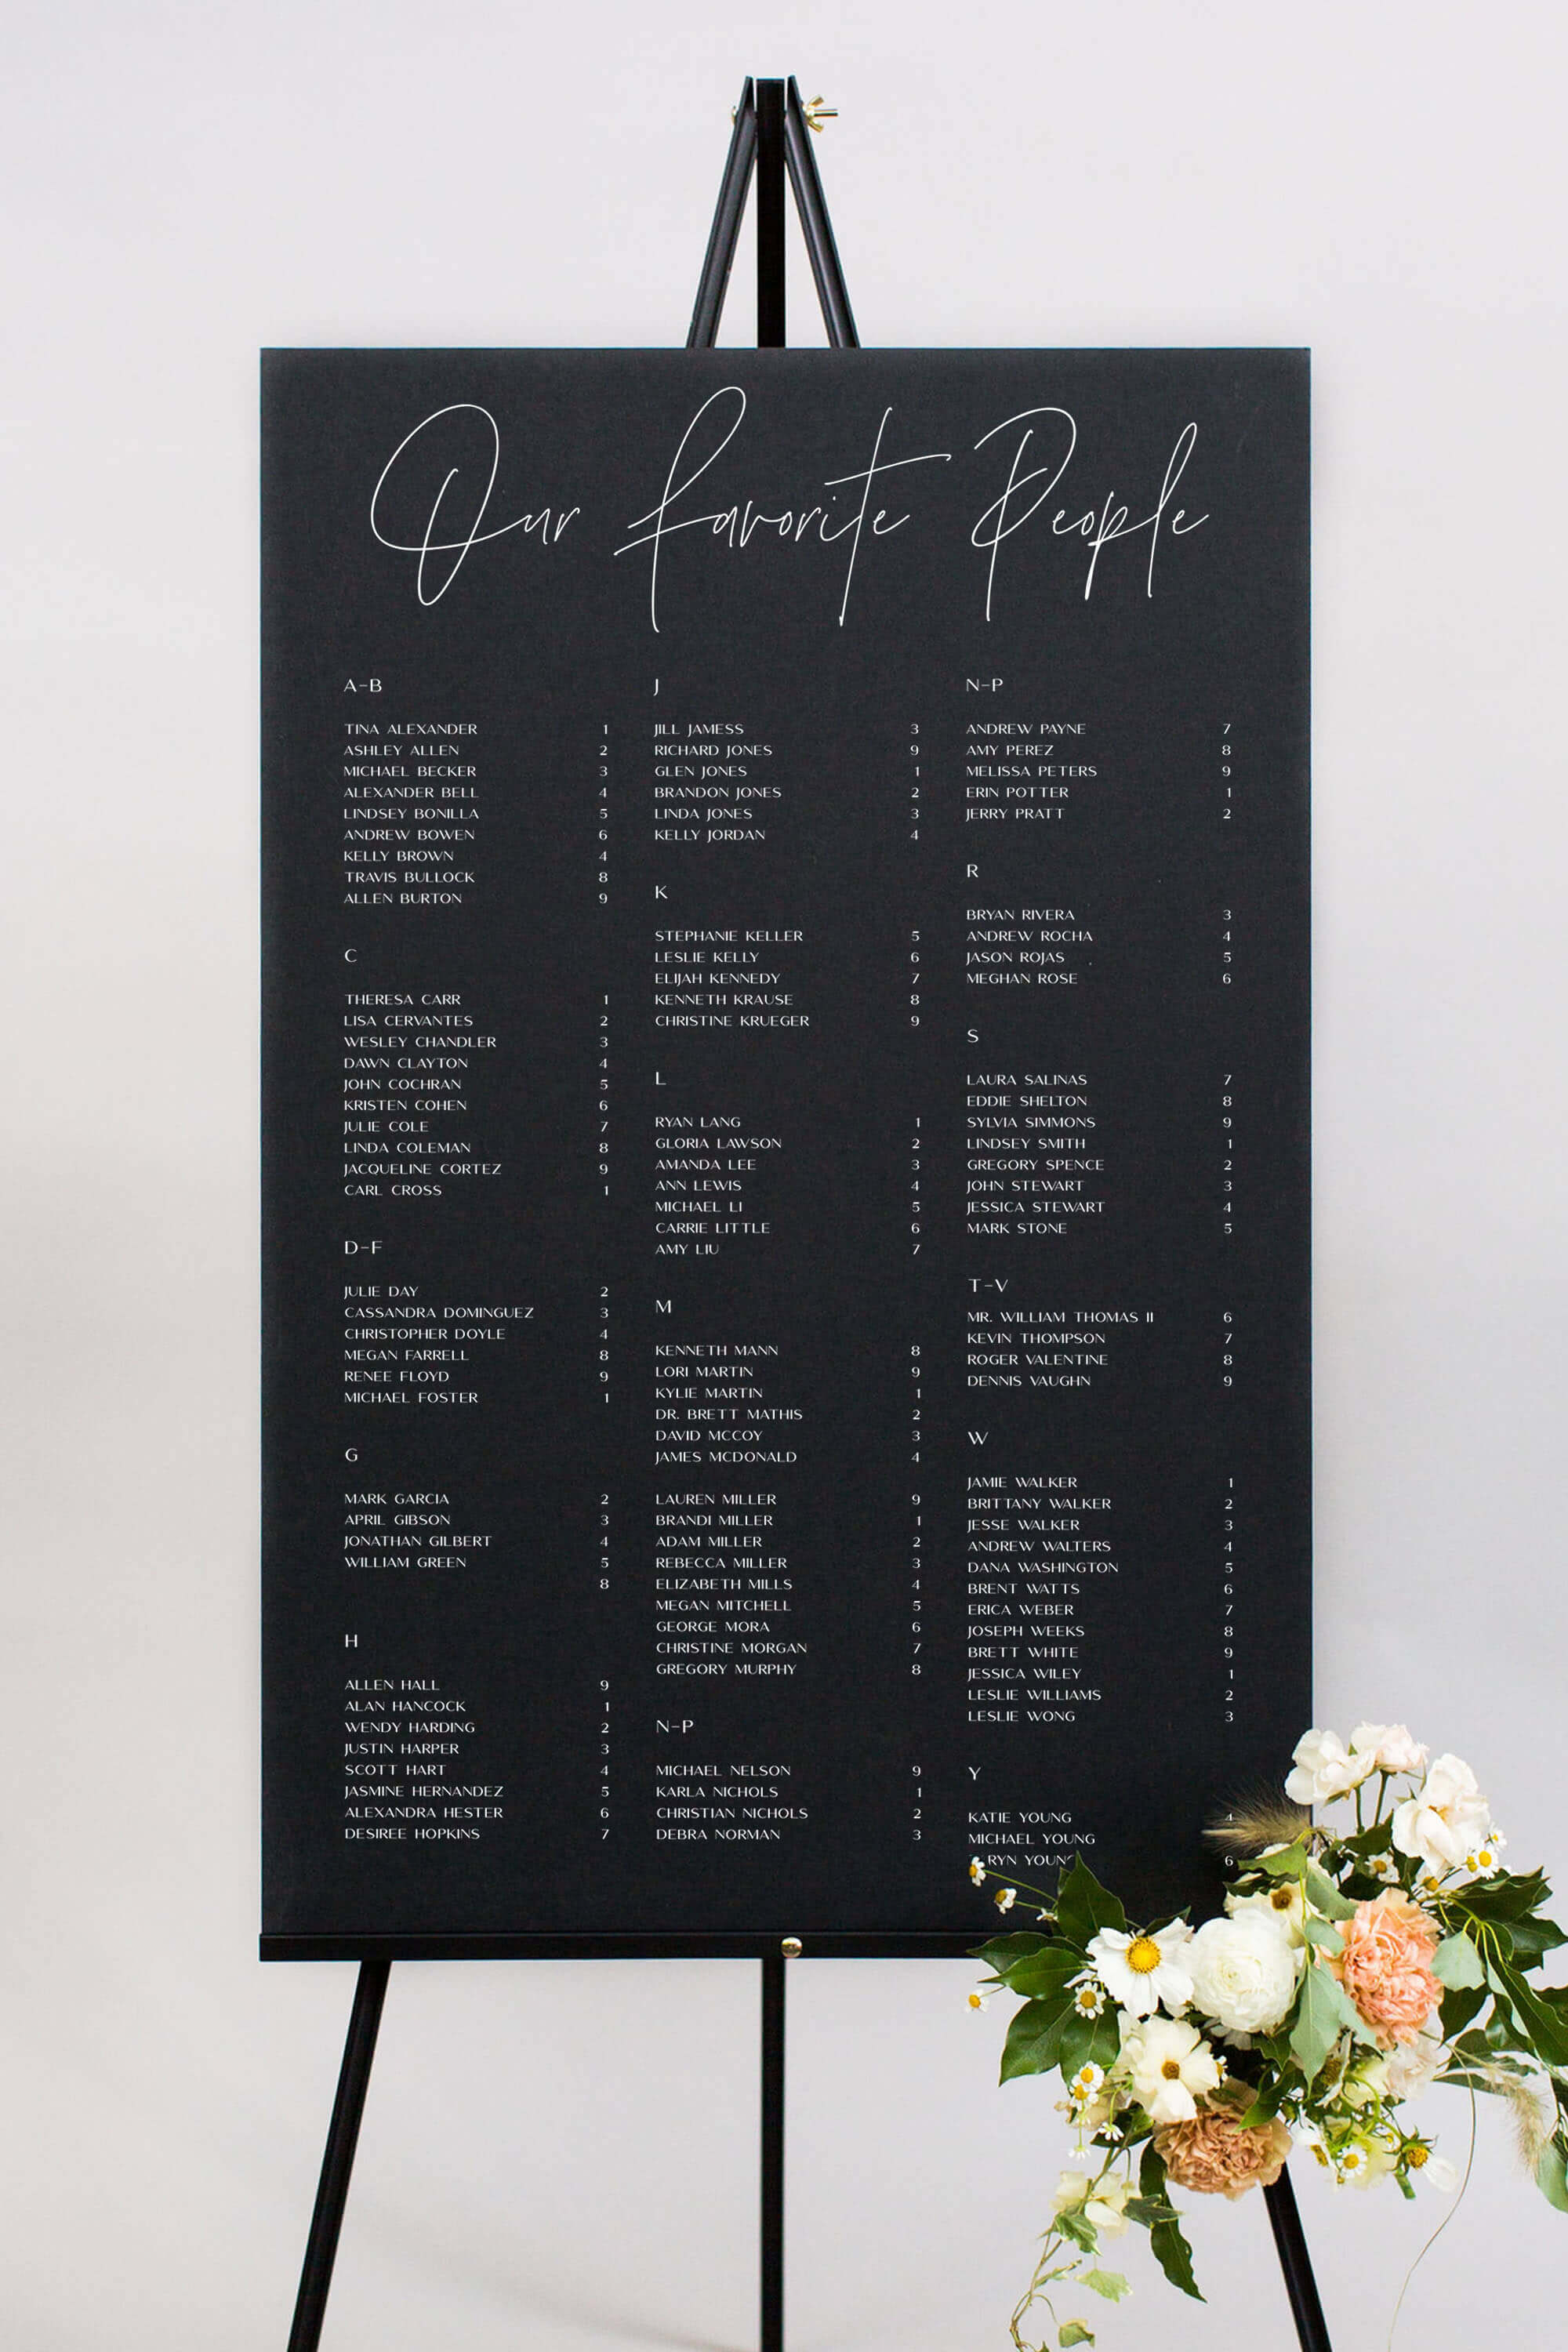 Our Favorite People
A-B
TINA ALEXANDER 1
ASHLEY ALLEN 2
MICHAEL BECKER 3
ALEXANDER BELL 4
LINDSEY BONILLA 5
ANDREW BOWEN 6
KELLY BROWN 4
TRAVIS BULLOCK 8
ALLEN BURTON 9
C
THERESA CARR 1
LISA CERVANTES 2
WESLEY CHANDLER 3
DAWN CLAYTON 4
JOHN COCHRAN 5
KRISTEN COHEN 6
JULIE COLE 7
LINDA COLEMAN 8
JACQUELINE CORTEZ 9
CARL CROSS 1
D-F
JULIE DAY 2
CASSANDRA DOMINGUEZ 3
CHRISTOPHER DOYLE 4
MEGAN FARRELL 8
RENEE FLOYD 9
MICHAEL FOSTER 1
G
MARK GARCIA 2
APRIL GIBSON 3
JONATHAN GILBERT 4
WILLIAM GREEN 5
8
H
ALLEN HALL 9
ALAN HANCOCK 1
WENDY HARDING 2
JUSTIN HARPER 3
SCOTT HART 4
JASMINE HERNANDEZ 5
ALEXANDRA HESTER 6
DESIREE HOPKINS 7
J
JILL JAMESS 3
RICHARD JONES 9
GLEN JONES 1
BRANDON JONES 2
LINDA JONES 3
KELLY JORDAN 4
K
STEPHANIE KELLER 5
LESLIE KELLY 6
ELIJAH KENNEDY 7
KENNETH KRAUSE 8
CHRISTINE KRUEGER 9
L
RYAN LANG 1
GLORIA LAWSON 2
AMANDA LEE 3
ANN LEWIS 4
MICHAEL LI 5
CARRIE LITTLE 6
AMY LIU 7
M
KENNETH MANN 8
LORI MARTIN 9
KYLIE MARTIN 1
DR. BRETT MATHIS 2
DAVID MCCOY 3
JAMES MCDONALD 4
LAUREN MILLER 9
BRANDI MILLER 1
ADAM MILLER 2
REBECCA MILLER 3
ELIZABETH MILLS 4
MEGAN MITCHELL 5
GEORGE MORA 6
CHRISTINE MORGAN 7
GREGORY MURPHY 8
N-P
MICHAEL NELSON 9
KARLA NICHOLS 1
CHRISTIAN NICHOLS 2
DEBRA NORMAN 3
N-P
ANDREW PAYNE 7
AMY PEREZ 8
MELISSA PETERS 9
ERIN POTTER 1
JERRY PRATT 2
R
BRYAN RIVERA 3
ANDREW ROCHA 4
JASON ROJAS 5
MEGHAN ROSE 6
S
LAURA SALINAS 7
EDDIE SHELTON 8
SYLVIA SIMMONS 9
LINDSEY SMITH 1
GREGORY SPENCE 2
JOHN STEWART 3
JESSICA STEWART 4
MARK STONE 5
T-V
MR. WILLIAM THOMAS II 6
KEVIN THOMPSON 7
ROGER VALENTINE 8
DENNIS VAUGHN 9
W
JAMIE WALKER 1
BRITTANY WALKER 2
JESSE WALKER 3
ANDREW WALTERS 4
DANA WASHINGTON 5
BRENT WATTS 6
ERICA WEBER 7
JOSEPH WEEKS 8
BRETT WHITE 9
JESSICA WILEY 1
LESLIE WILLIAMS 2
LESLIE WONG 3
Y
KATIE YOUNG 4
MICHAEL YOUNG
YOUNG 6